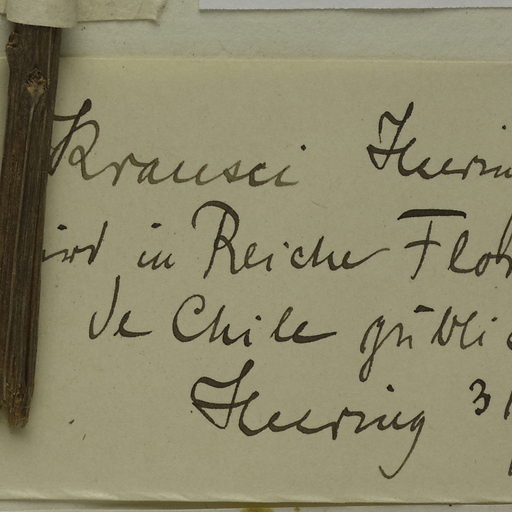 Krausei Heerin
ird in Reiche Flor
de Chile publi
Heering 31